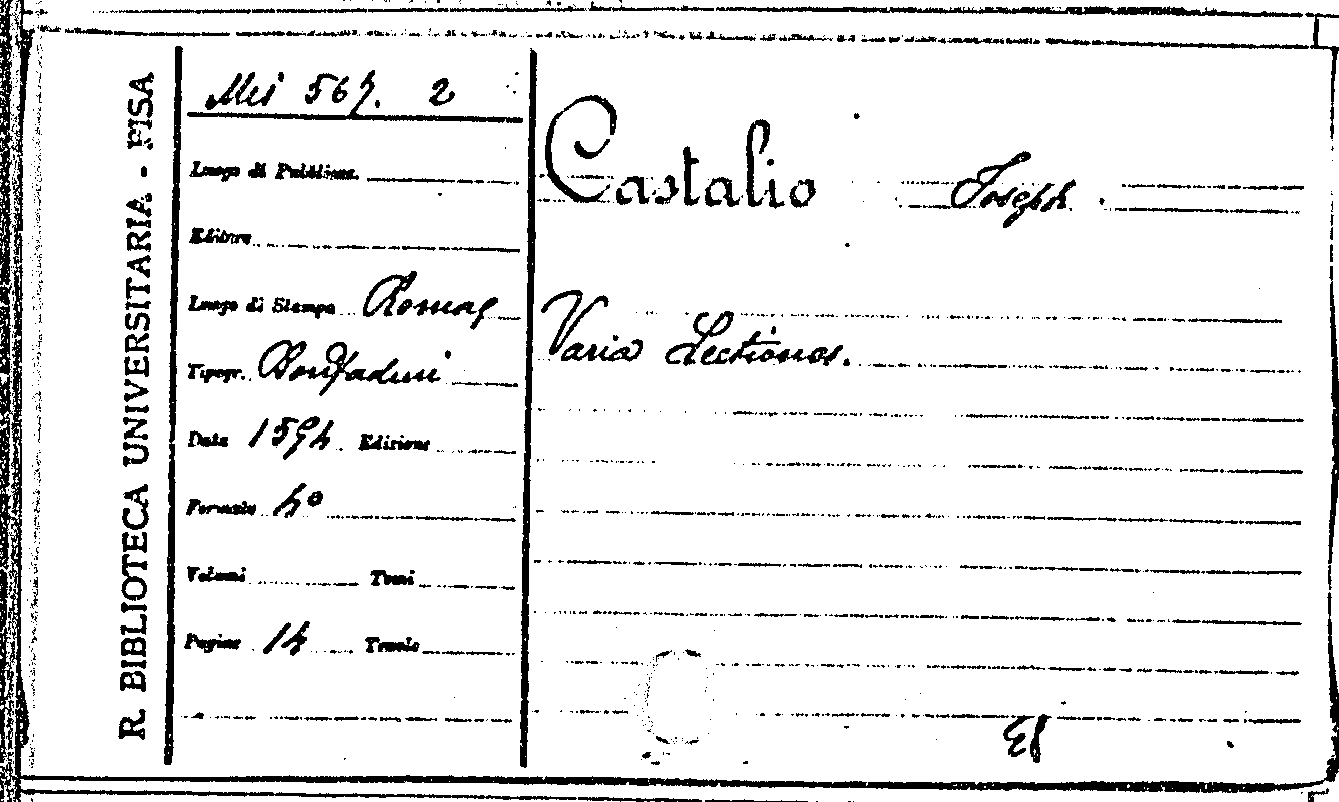 R. BIBLIOTECA UNIVERSITARIA - PISA
Mis 567. 2
Luogo di Pubblicaz.
Editore
Luogo di Stampa Romae
Tipogr. Bonfadini
Data 1594 Edizione
Formato 4º
Volumi Tomi
Pagine 14 Tavole
Castalio Joseph.
Varia Lectiones.